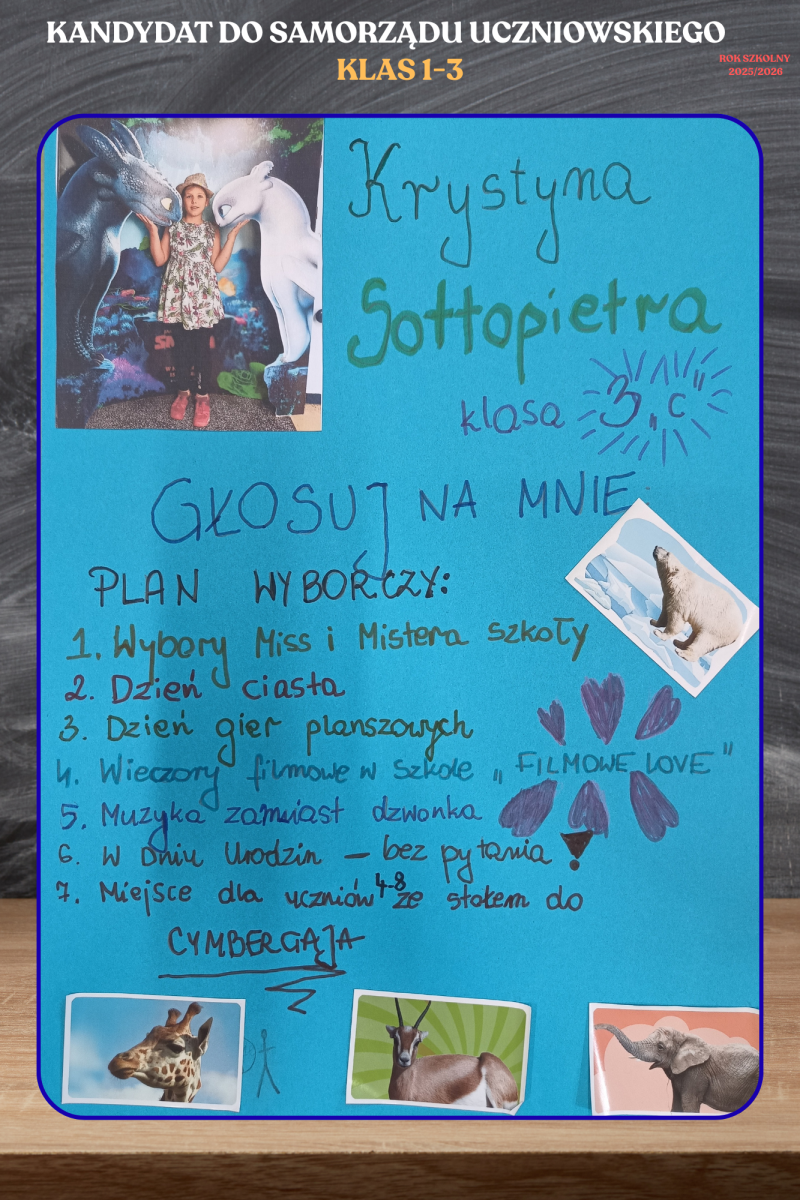 KANDYDAT DO SAMORZĄDU UCZNIOWSKIEGO
KLAS 1-3
ROK SZKOLNY
2025/2026
Krystyna
Sottopietra
klasa 3 „c"
GŁOSUJ NA MNIE
PLAN WYBORCZY:
1. Wybory Miss i Mistera szkoły
2. Dzień ciasta
3. Dzień gier planszowych
4. Wieczory filmowe w Szkole „FILMOWE LOVE"
5. Muzyka zamiast dzwonka
6. W Dniu Urodzin – bez pytania!
7. Miejsce dla uczniów 4-8 ze stołem do
CYMBERGAJA